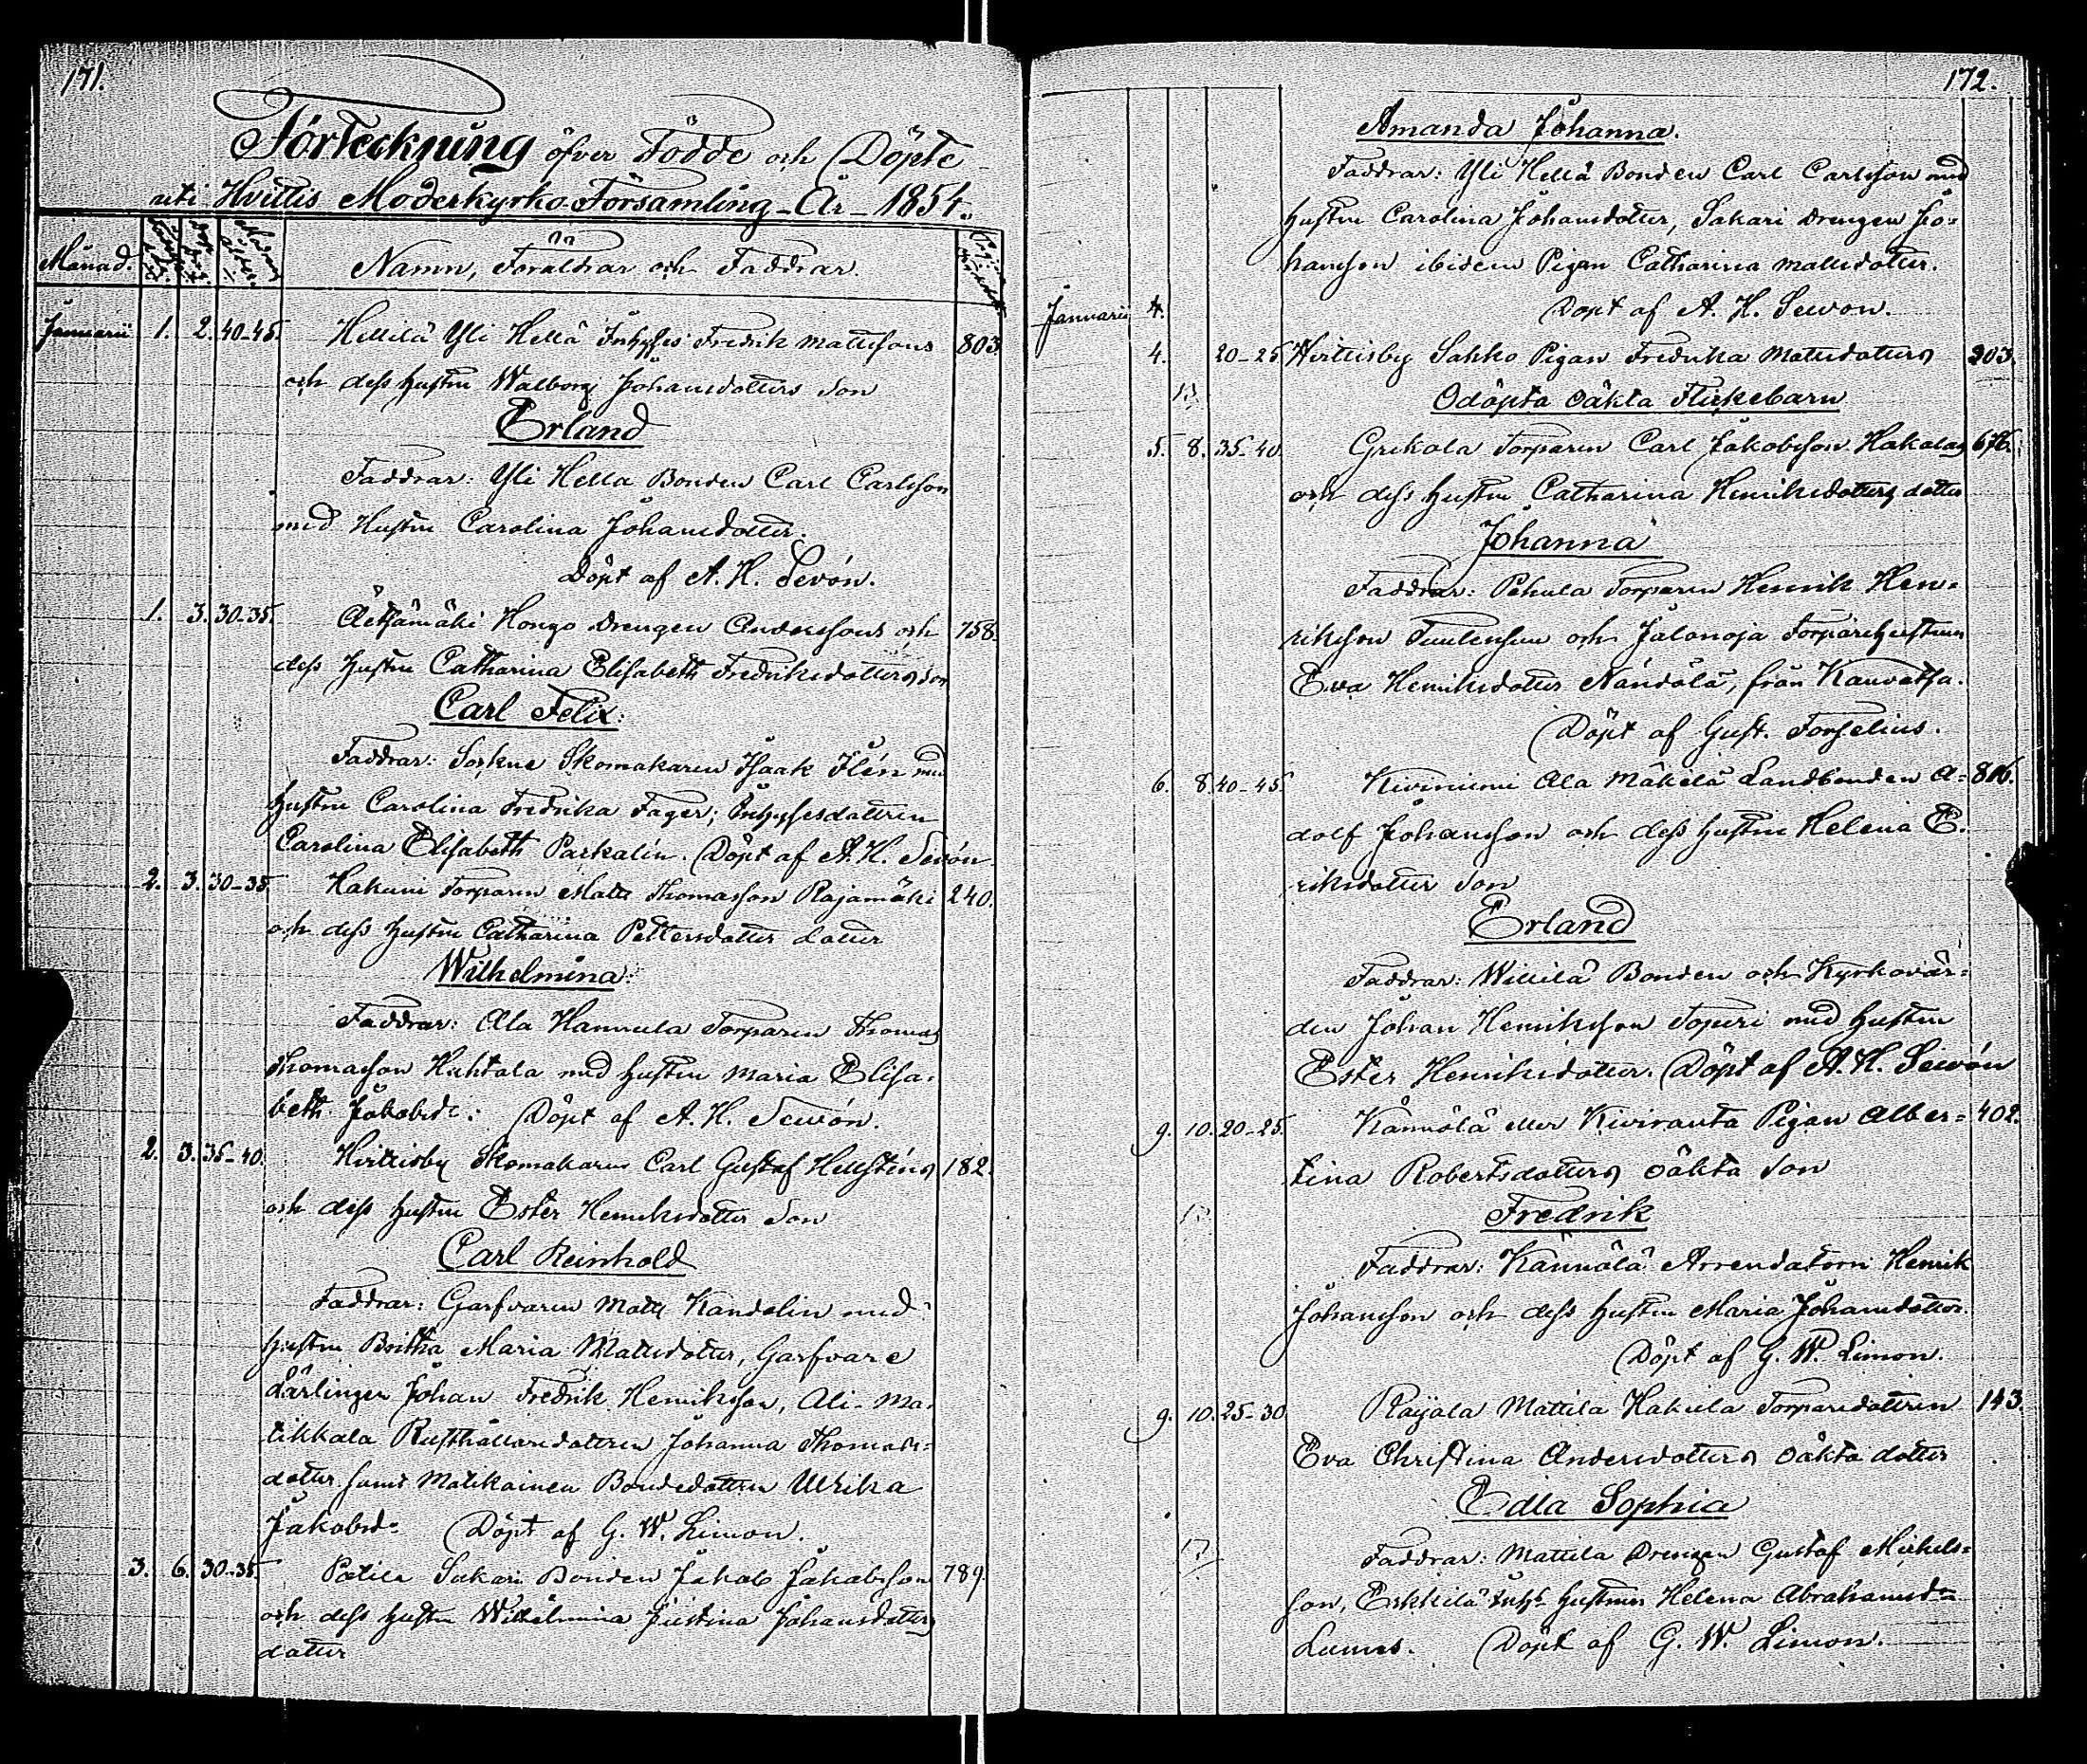 171.
Förteckning öfver Födde och Döpte
uti Hvittis Moderkyrko Församling - År - 1854.
Månad. Namn, Föräldrar och Faddrar.
Januarii 1. 2. 40-45. Hellilä Yli Hellä Inhyses Fredrik Mattssons 803.
och dess hustru Walborg Johansdotters Son
Erland
Faddrar: Yli Hella Bonden Carl Carlsson
med Hustru Carolina Johansdotter.
Döpt af A. H. Sevón.
1. 3. 30-35. Hongo Drengen Anderssons och 758.
dess hustru Catharina Elisabeth Fredriksdotters son
Carl Felix:
Faddrar: Skomakaren Isaak Ilén med
hustru Carolina Fredrika Fager; Inhysesdottren
Carolina Elisabeth Parkalin. Döpt af A. H. Sevón.
2. 3. 30-35. Hakuni Torparen Matts Thomasson Rajamäki 240.
och dess hustru Catharina Pettersdotter dotter
Wilhelmina:
Faddrar: Ala Hannula Torparen Thomas
Thomasson Huhtala med hustru Maria Elisa-
beth Jakobsd: Döpt af A. H. Sewón.
2. 3. 35-40. Hvittisby Skomakaren Carl Gustaf Hellsténs 182.
och dess hustru Ester Henriksdotter Son
Carl Reinhold
Faddrar: Garfvaren Matts Kandelin med
hustru Britha Maria Mattsdotter, Garfvare
Lärlingen Johan Fredrik Henriksson, Ali-Ma-
tikkala Rusthållaredottren Johanna Thomas-
dotter samt Matikainen Bondedottren Ulrika
Jakobsd. Döpt af G. W. Limon.
3. 6. 30-35. Sakari Bonden Jakob Jakobsson 789.
och dess hustru Wilhelmina Justina Johansdotters
dotter
172.
Amanda Johanna.
Faddrar: Yli Hellä Bonden Carl Carlsson med
hustru Carolina Johansdotter, Sakari Drengen Jo-
hansson ibidem Pigan Catharina Mattsdotter.
Januarii 4. Döpt af A. H. Sewon.
4. 20-25 Hvittisby Sahko Pigan Fredrika Mattsdotters 203.
Odöpta oäkta Flickebarn
5. 8. 35-40. Grekola Torparen Carl Jakobsson Hakalas 676.
och dess hustru Catharina Henriksdotters dotter
Johanna
Faddrar: Pehula Torparen Henrik Hen-
riksson och Jalonoja Torparehustrun
Eva Henriksdotter från Kauvatsa.
Döpt af Gust. Forselius.
6. 8. 40-45. Kiviniemi Ala Mäkelä Landbonden A- 806.
dolf Johansson och dess hustru Helena E-
riksdotter Son
Erland
Faddrar: Willilä Bonden och Kyrkovär-
den Johan Henriksson Topuri med hustru
Ester Henriksdotter. Döpt af A. H. Sewón
9. 10. 20-25. Kännölä eller Kiviranta Pigan Alber- 402.
tina Robertsdotters oäkta Son
Fredrik
Faddrar: Kännölä Arrendatorn Henrik
Johansson och dess hustru Maria Johansdotter.
Döpt af G. W. Limon.
9. 10. 25-30 Raijala Mattila Hakula Torparedottren 143.
Eva Christina Andersdotters oäkta dotter
Edla Sophia
Faddrar: Mattila Drengen Gustaf Mickels-
son, Erkkilä Inhs hustrun Helena Abrahamsd:r
Döpt af G. W. Limon.